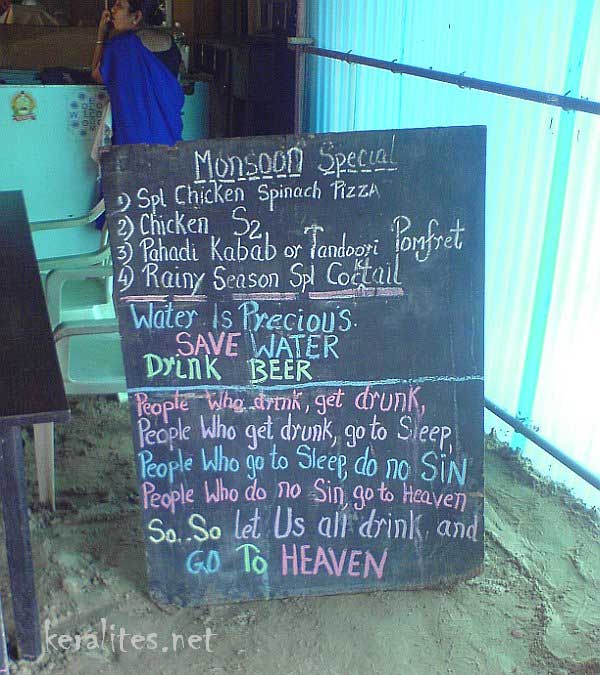 Monsoon Special
1) Spl Chicken Spinach Pizza
2) Chicken S2
3) Pahadi Kabab or Tandoori Pomfret
4) Rainy Season Spl Cocktail
Water Is Precious.
SAVE WATER
Drink BEER
People Who drink, get drunk,
People Who get drunk, go to Sleep,
People Who go to Sleep, do no SiN
People Who do no Sin, go to Heaven
So..So let Us all drink, and
GO To HEAVEN
keralites.net